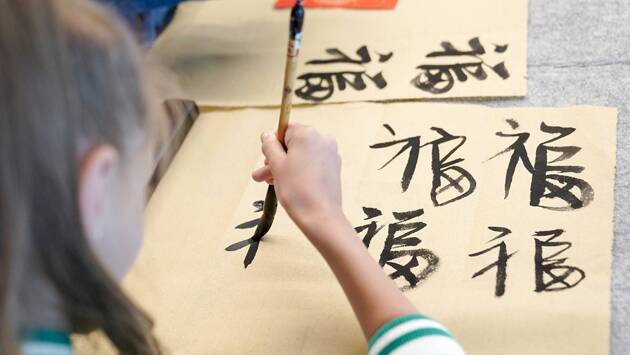 福 福
福 福
福 福